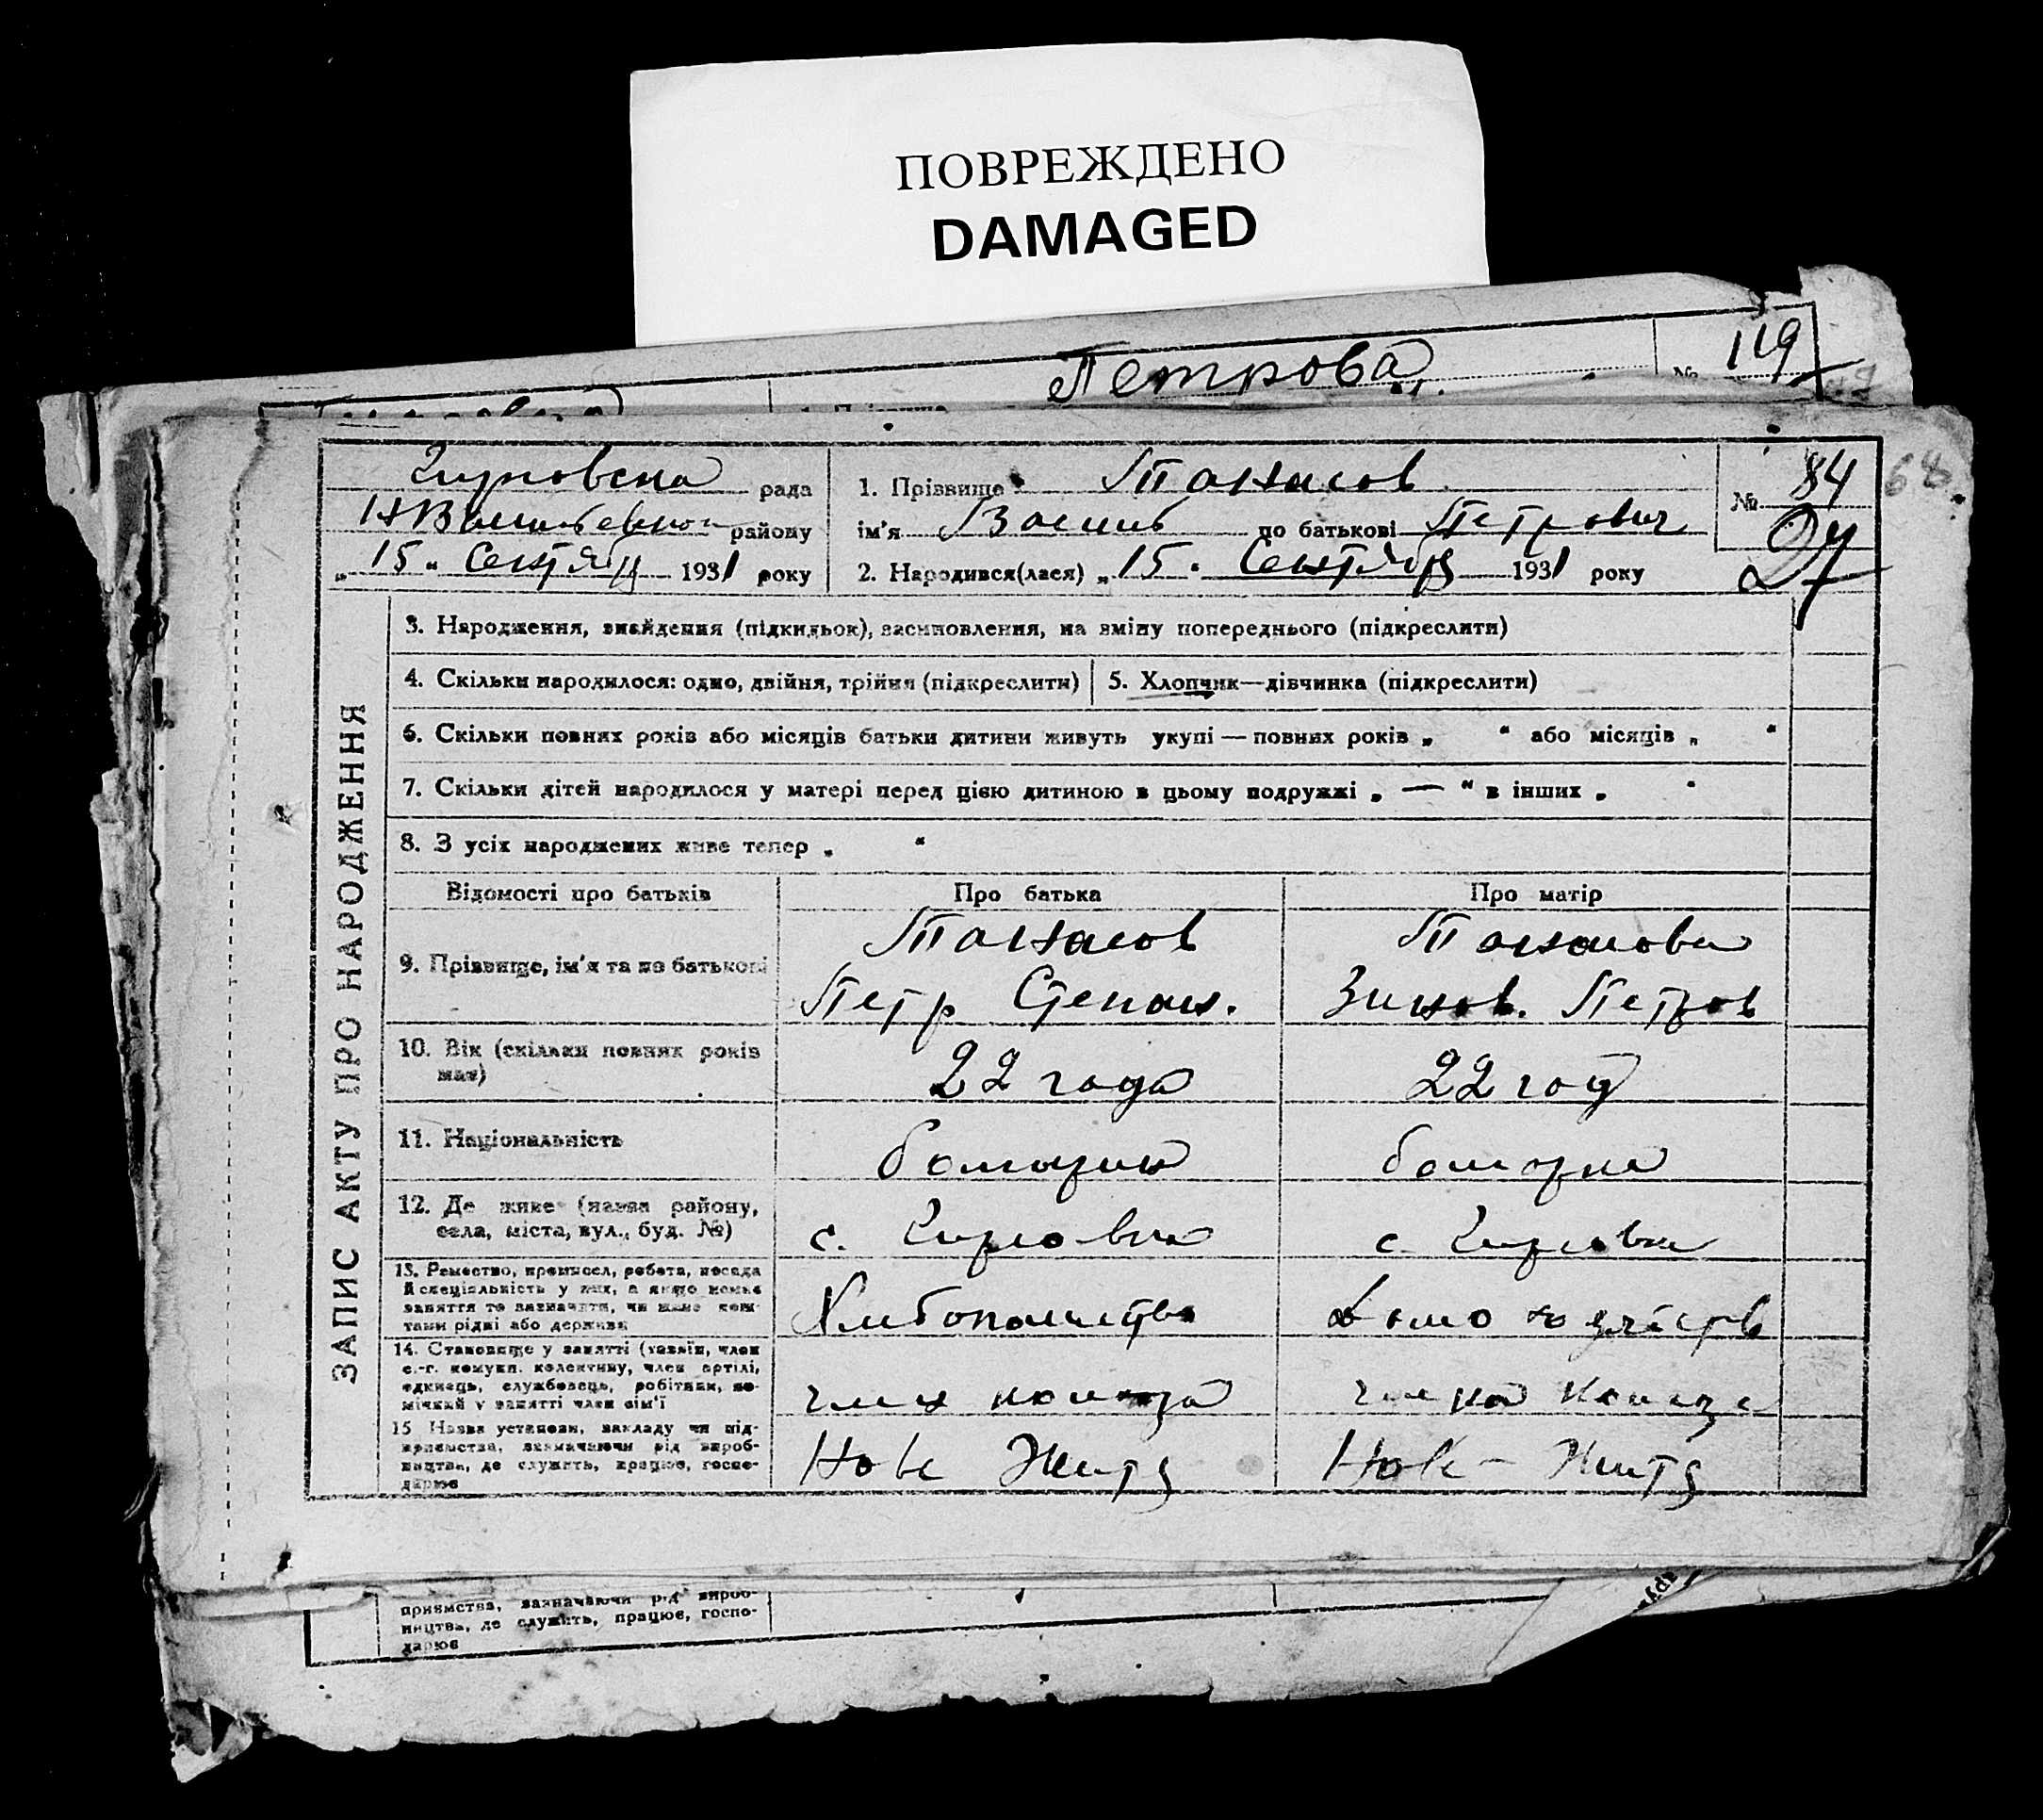 ПОВРЕЖДЕНО
DAMAGED
Петрова
№ 119
84
68
рада
1. Прізвище Танасов
№
району
ім'я Василь по батькові Петрович
"15" Сентября 1931 року
2. Народився(лася) "15" Сентября 1931 року
27
ЗАПИС АКТУ ПРО НАРОДЖЕННЯ
3. Народження, знайдення (підкидьок), засиновлення, на зміну попереднього (підкреслити)
4. Скільки народилося: одно, двійня, трійня (підкреслити)
5. Хлопчик—дівчинка (підкреслити)
6. Скільки повних років або місяців батьки дитини живуть укупі — повних років „ “ або місяців „ “
7. Скільки дітей народилося у матері перед цією дитиною в цьому подружжі „ — “ в інших „ “
8. З усіх народжених живе тепер „ “
Відомості про батьків
Про батька
Про матір
9. Прізвище, ім'я та по батькові
Танасов
Петр Степан.
Танасова
Зинов. Петров
10. Вік (скільки повних років
має)
22 года
22 год
11. Національність
болгарин
болгарка
12. Де живе (назва району,
села, міста, вул., буд. №)
с.
с.
13. Ремество, промисел, робота, посада
й спеціяльність у них, а якщо немає
заняття то зазначити, чи живе кош-
тами рідні або держави
14. Становище у занятті (хазяїн, член
с.-г. комуни, колективу, член артілі,
одинець, службовець, робітник, по-
мічний у занятті член сім'ї
член
15 Назва установи, закладу чи під-
приємства, зазначаючи рід вироб-
ництва, де служить, працює, госпо-
дарює
Нове Життя
Нове - Життя
приємства, зазначаючи рід вироб-
ництва, де служить, працює, госпо-
дарює